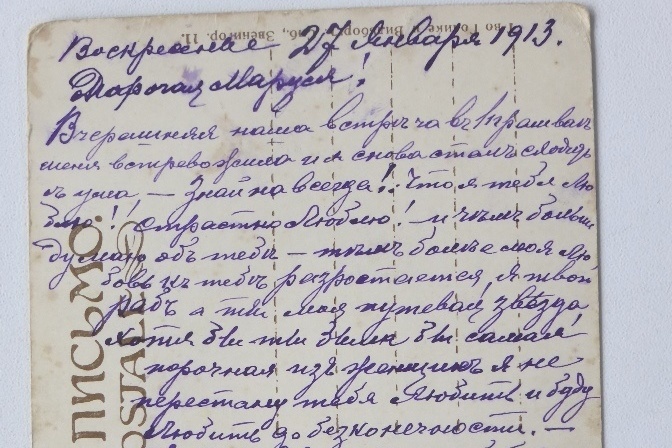 Воскресенье 27 Января 1913.
Дорогая Маруся!
Вчерашняя наша встреча въ трамваѣ
меня встревожила и я снова сталъ сходить
съ ума, — Знай навсегда!! Что я тебя лю
блю! страстно люблю! и чѣмъ больше
думаю объ тебѣ — тѣмъ болѣе моя лю
бовь къ тебѣ разростается, я твой
рабъ а ты моя путевая звѣзда
хотя бы ты была бы самая
порочная изъ женщинъ я не
перестану тебя любить и буду
любить до безконечности. —
ПИСЬМО.
POSTALE
Звенигор. 11.